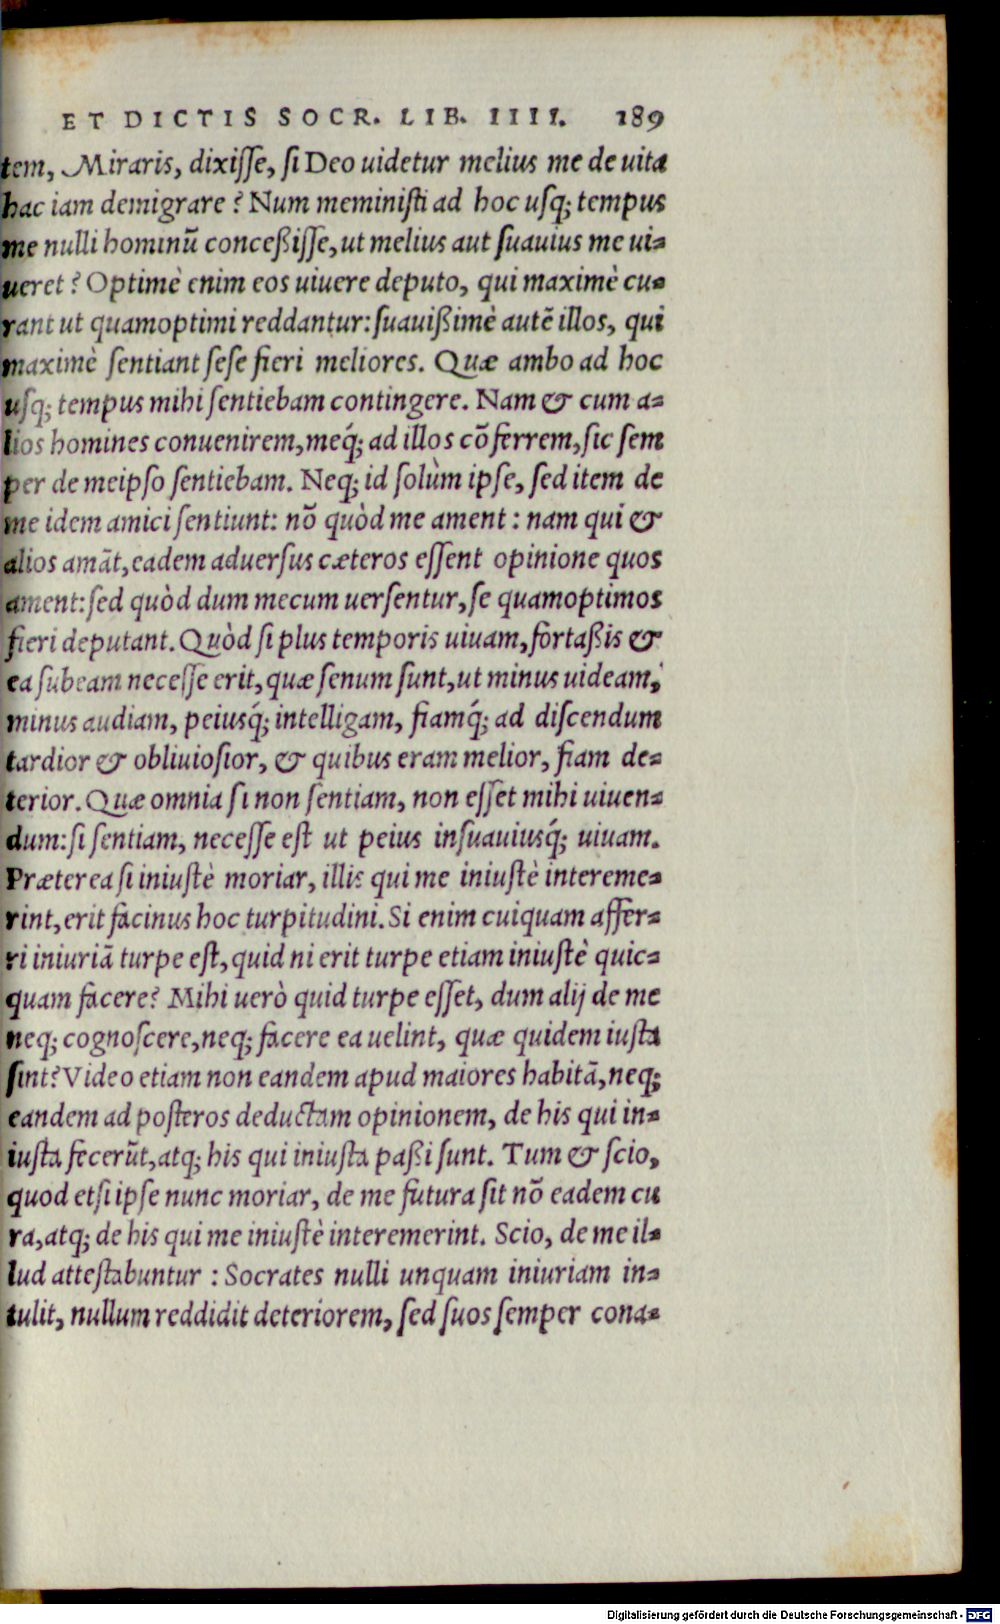 ET DICTIS SOCR. LIB. IIII. 189
tem, Miraris, dixiſſe, ſi Deo uidetur melius me de uita
hac iam demigrare? Num meminiſti ad hoc uſq; tempus
me nulli hominũ conceßiſſe, ut melius aut ſuauius me ui-
ueret? Optimè enim eos uiuere deputo, qui maximè cu-
rant ut quamoptimi reddantur: ſuauißimè autẽ illos, qui
maximè ſentiant ſeſe fieri meliores. Quæ ambo ad hoc
uſq; tempus mihi ſentiebam contingere. Nam & cum a-
lios homines conuenirem, meq́; ad illos cõferrem, ſic ſem
per de meipſo ſentiebam. Neq; id ſolùm ipſe, ſed item de
me idem amici ſentiunt: nõ quòd me ament: nam qui &
alios amãt, eadem aduerſus cæteros eſſent opinione quos
ament: ſed quòd dum mecum uerſentur, ſe quamoptimos
fieri deputant. Quòd ſi plus temporis uiuam, fortaßis &
ea ſubeam neceſſe erit, quæ ſenum ſunt, ut minus uideam,
minus audiam, peiusq́; intelligam, fiamq́; ad diſcendum
tardior & obliuioſior, & quibus eram melior, fiam de-
terior. Quæ omnia ſi non ſentiam, non eſſet mihi uiuen-
dum: ſi ſentiam, neceſſe eſt ut peius inſuauiusq́; uiuam.
Præterea ſi iniuſtè moriar, illis qui me iniuſtè intereme-
rint, erit facinus hoc turpitudini. Si enim cuiquam affer-
ri iniuriã turpe eſt, quid ni erit turpe etiam iniuſtè quic-
quam facere? Mihi uerò quid turpe eſſet, dum alij de me
neq; cognoſcere, neq; facere ea uelint, quæ quidem iuſta
ſint? Video etiam non eandem apud maiores habitã, neq;
eandem ad poſteros deductam opinionem, de his qui in-
iuſta fecerũt, atq; his qui iniuſta paßi ſunt. Tum & ſcio,
quod etſi ipſe nunc moriar, de me futura ſit nõ eadem cu
ra, atq; de his qui me iniuſtè interemerint. Scio, de me il-
lud atteſtabuntur: Socrates nulli unquam iniuriam in-
tulit, nullum reddidit deteriorem, ſed ſuos ſemper cona-
Digitalisierung gefördert durch die Deutsche Forschungsgemeinschaft - DFG